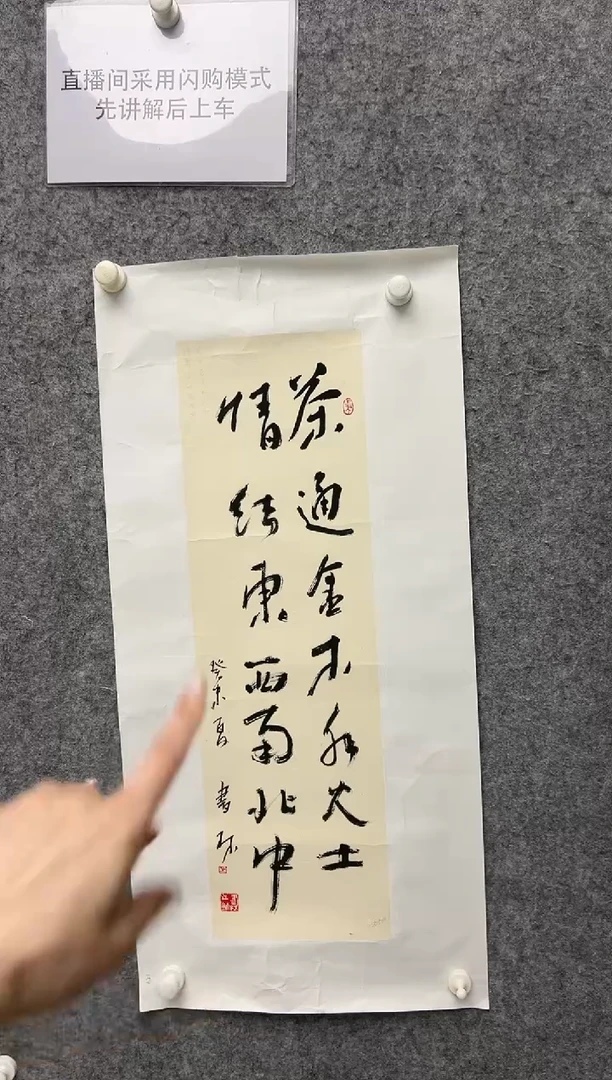 直播间采用闪购模式
先讲解后上车
茶通金木水火土
情结东西南北中
癸未夏 书